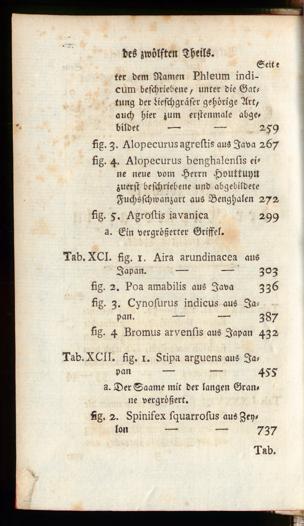 des zwölften Theils.
Seite
ter dem Namen Phleum indi-
cum beschriebene, unter die Gat-
tung der Lieschgräser gehörige Art,
auch hier zum erstenmale abge-
bildet — — 259
fig. 3. Alopecurus agrestis aus Java 267
fig. 4. Alopecurus benghalensis ei-
ne neue vom Herrn Houttuyn
zuerst beschriebene und abgebildete
Fuchsschwanzart aus Benghalen 272
fig. 5. Agrostis iavanica 299
a. Ein vergrößerter Griffel.
Tab. XCI. fig. 1. Aira arundinacea aus
Japan. — — 303
fig. 2. Poa amabilis aus Java 336
fig. 3. Cynosurus indicus aus Ja-
pan. — — 387
fig. 4 Bromus arvensis aus Japan 432
Tab. XCII. fig. 1. Stipa arguens aus Ja-
pan — — 455
a. Der Saame mit der langen Gran-
ne vergrößert.
fig. 2. Spinifex squarrosus aus Zey-
lon — — 737
Tab.